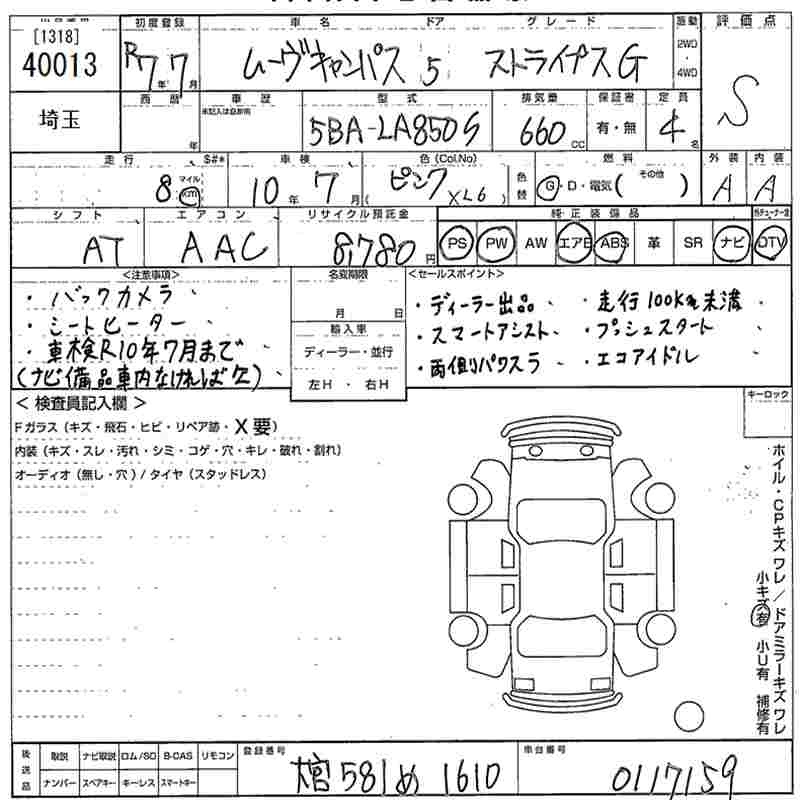 [1318]
40013
初度登録
R7年7月
車名
ドア
グレード
ムーヴキャンバス 5 ストライプスG
駆動
2WD
・
4WD
評価点
S
埼玉
西暦
年
車歴
型式
5BA-LA850S
排気量
660cc
保証書
有・無
定員
4名
走行
S#*
8
マイル
車検
10年7月(
色(Col.No)
ピンク XL6 )
色替
燃料
G・D・電気( その他 )
外装
A
内装
A
シフト
AT
エアコン
AAC
リサイクル預託金
8,780円
純正装備品
PS PW AW エアB ABS 革 SR ナビ DTV
<注意事項>
・バックカメラ
・シートヒーター
・車検R10年7月まで
(ナビ備品車内なければ欠)
名変期限
月 日
輸入車
ディーラー・並行
左H・右H
<セールスポイント>
・ディーラー出品 ・走行100Km未満
・スマートアシスト ・プッシュスタート
・両側パワスラ ・エコアイドル
<検査員記入欄>
Fガラス(キズ・飛石・ヒビ・リペア跡・X要)
内装(キズ・スレ・汚れ・シミ・コゲ・穴・キレ・破れ・割れ)
オーディオ(無し・穴)/タイヤ(スタッドレス)
キーロック
ホイル・CPキズ ワレ/ドアミラーキズ ワレ
小キズ有 小U有 補修有
後送品
取説 ナビ取説 ロム/SD B-CAS リモコン
ナンバー スペアキー キーレス スマートキー
登録番号
581 め 1610
車台番号
0117159